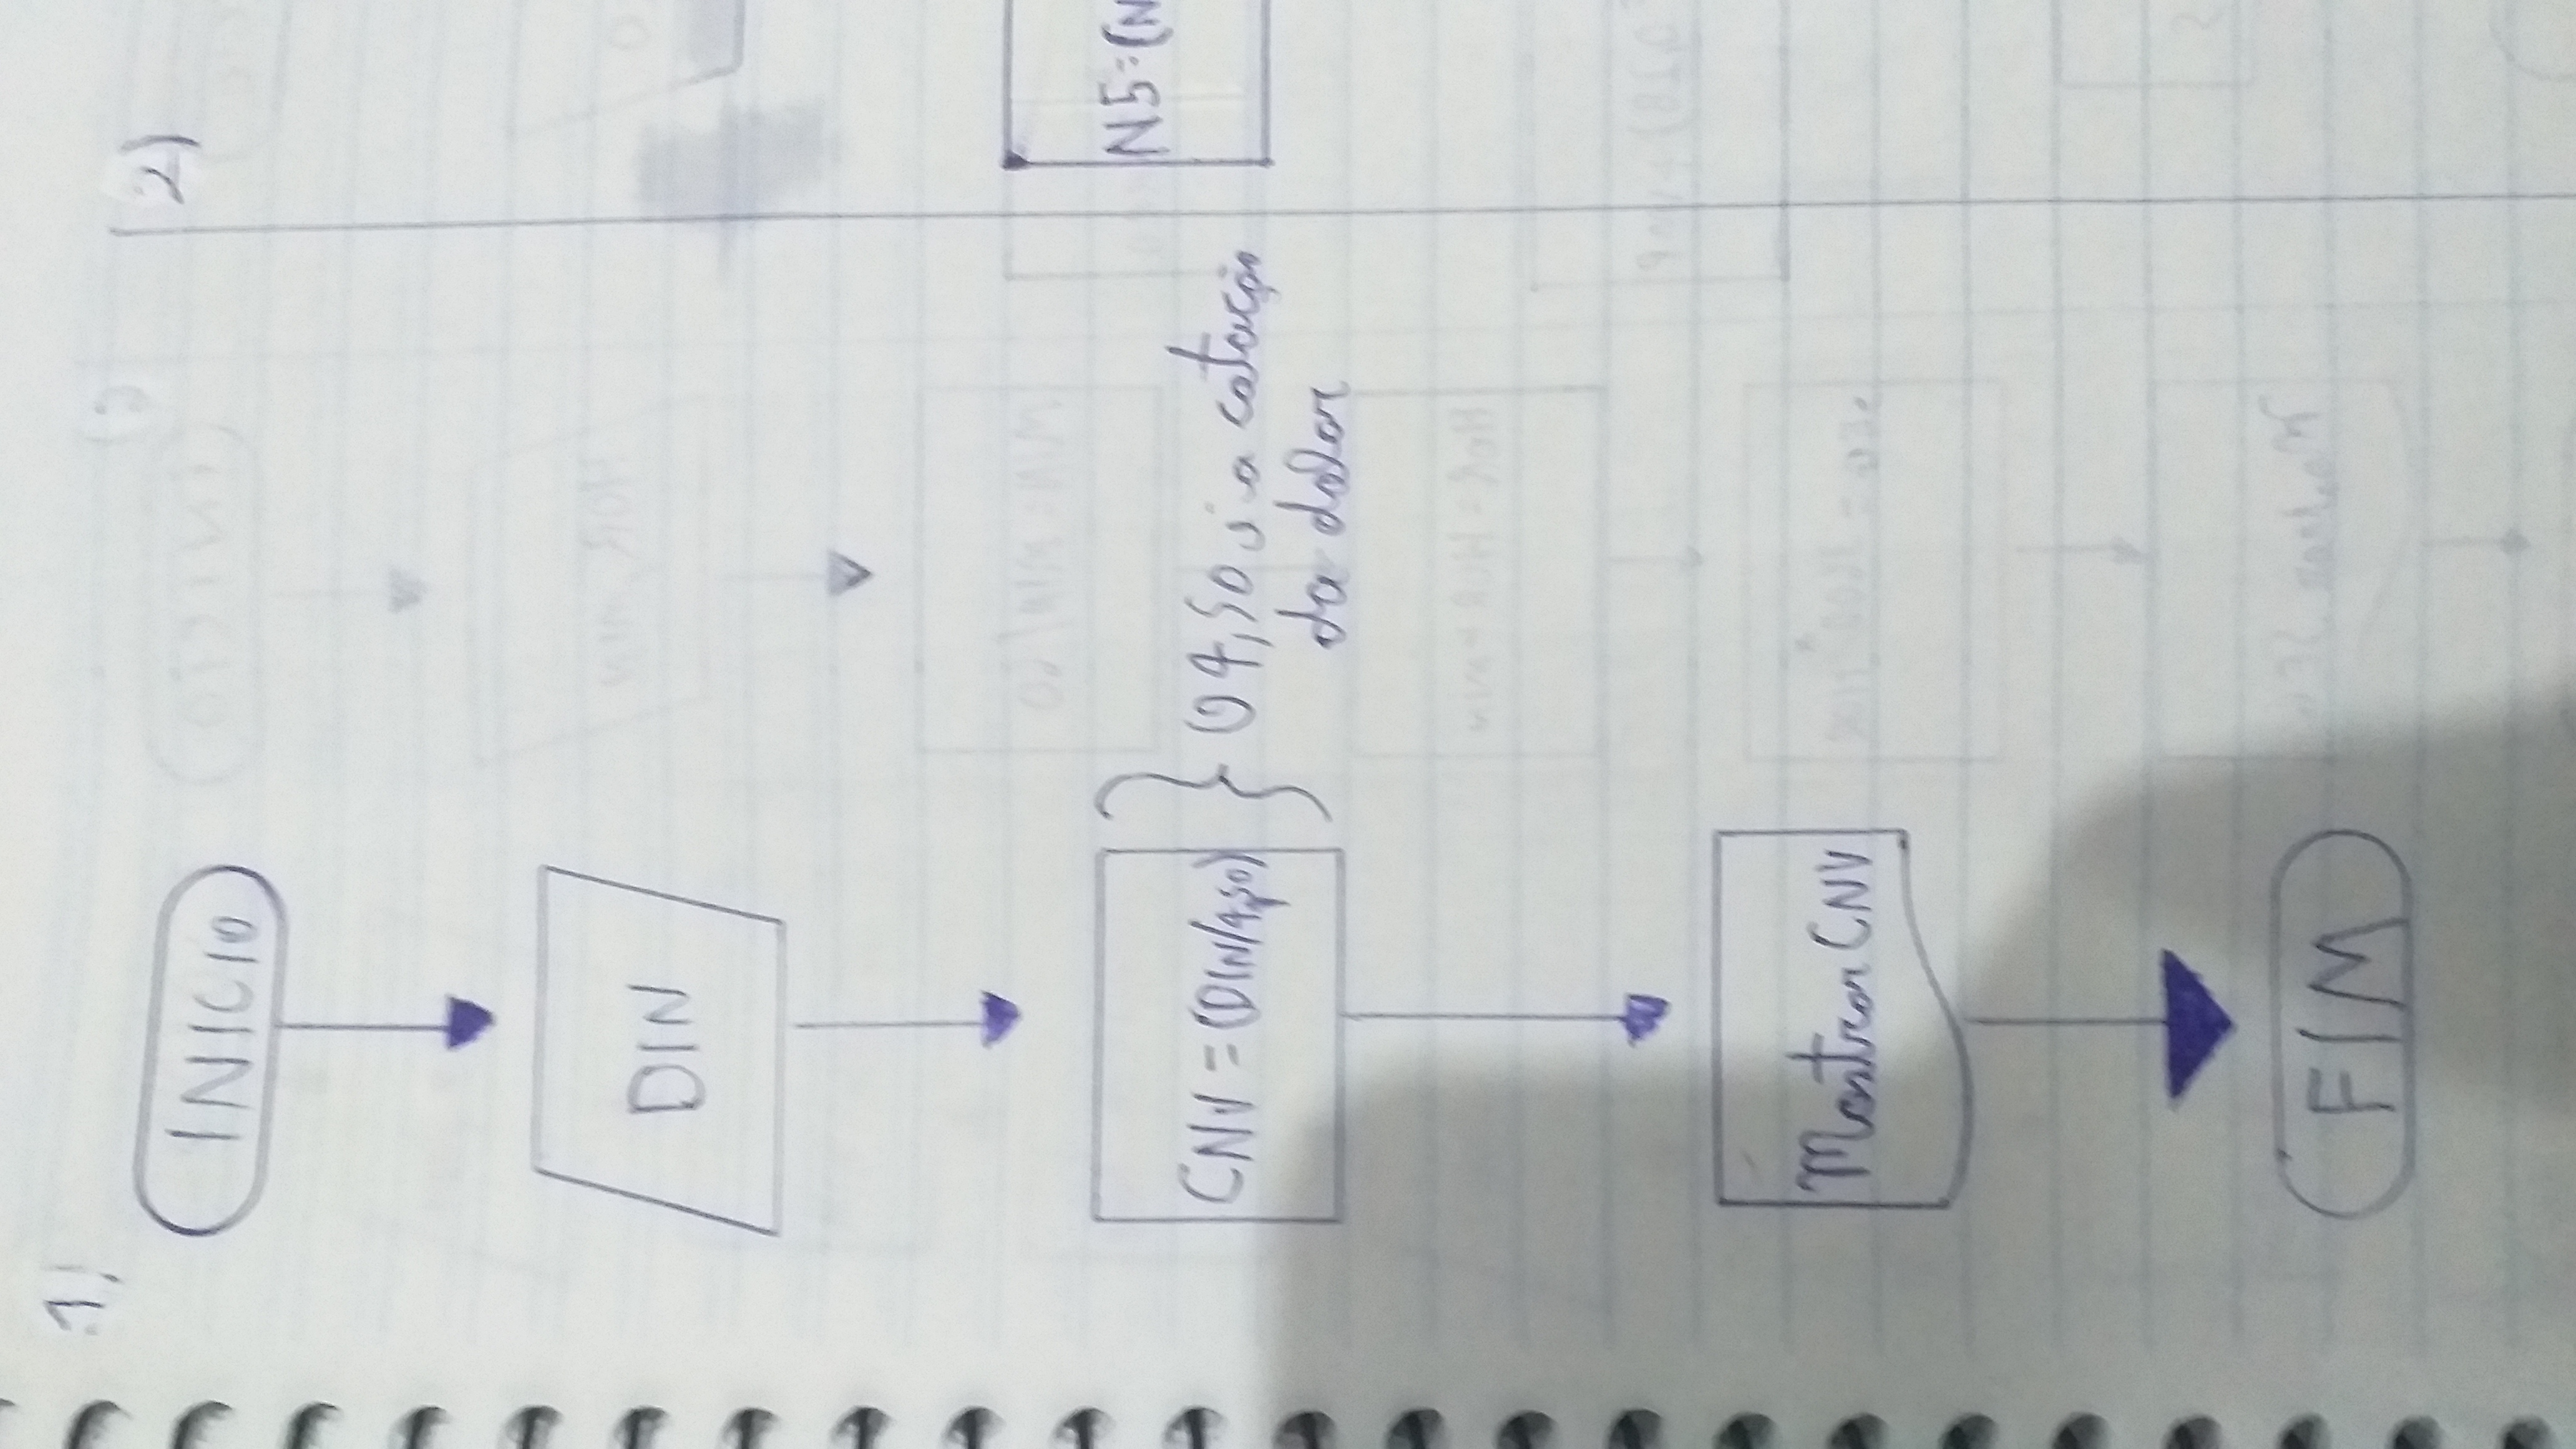 1)
INICIO
DIN
CNV = (DIN/4,50)
04,50 a cotação
da dolar
Mostrar CNV
FIM
2)
N5=(N